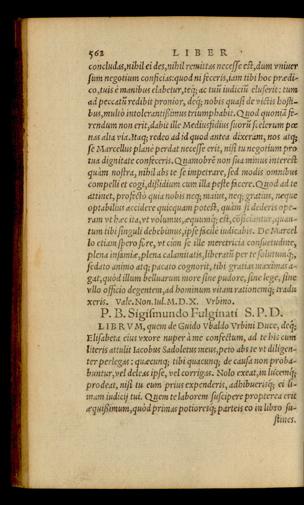 562 LIBER
concludas, nihil ei des, nihil remittas necesse est, dum vniuer
sum negotium conficias: quod ni feceris, iam tibi hoc prædi-
co, tuis è manibus elabetur, teq; ac tuū iudiciū eluserit: tum
ad peccatū redibit pronior, deq; nobis quasi de victis hosti-
bus, multò intolerantissimus triumphabit. Quod quoniā fe-
rendum non erit, dabit ille Mediusfidius suorū scelerum pœ
nas alia via. Itaq; redeo ad id quod antea dixeram, nos atq;
se Marcellus planè perdat necesse erit, nisi tu negotium pro
tua dignitate confeceris. Quamobrē non sua minus interest
quàm nostra, nihil abs te se impetrare, sed modis omnibus
compelli et cogi, dissidium cum illa peste facere. Quod ad te
attinet, profectò quia nobis neq; maius, neq; gratius, neque
optabilius accidere quicquam potest, quàm si dederis ope-
ram vt hæc ita, vt volumus, æquumq; est, cōficiantur, quan-
tum tibi singuli debebimus, ipse facilè iudicabis. De Marcel
lo etiam spero fore, vt cùm se ille meretricia consuetudine,
plena infamiæ, plena calamitatis, liberatū per te solutumq;,
sedato animo atq; pacato cognorit, tibi gratias maximas a-
gat, quòd illum belluarum more sine pudore, sine lege, sine
vllo officio degentem, ad hominum vitam rationemq; tradu
xeris. Vale. Non. Iul. M.D.X. Vrbino.
P. B. Sigismundo Fulginati S. P. D.
LIBRVM, quem de Guido Vbaldo Vrbini Duce, deq;
Elisabeta eius vxore nuper à me confectum, ad te his cum
literis attulit Iacobus Sadoletus meus, peto abs te vt diligen-
ter perlegas: quæcunq; tibi quacunq; de causa non proba-
buntur, vel deleas ipse, vel corrigas. Nolo exeat, in lucemq;
prodeat, nisi tu eum prius expenderis, adhibuerisq; ei li-
mam iudicij tui. Quem te laborem suscipere propterea erit
æquissimum, quòd primas potioresq; parteis eo in libro su-
stines.